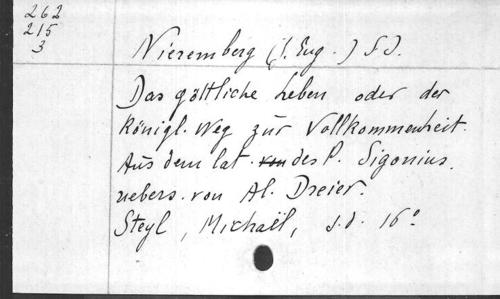 262
215
3
Nieremberg (J. Eug.) S.J.
Das göttliche Leben oder der
königl. Weg zur Vollkommenheit.
Aus dem lat. des P. Sigonius.
uebers. von Al. Dreier.
Steyl, Michaël, s.d. 16°